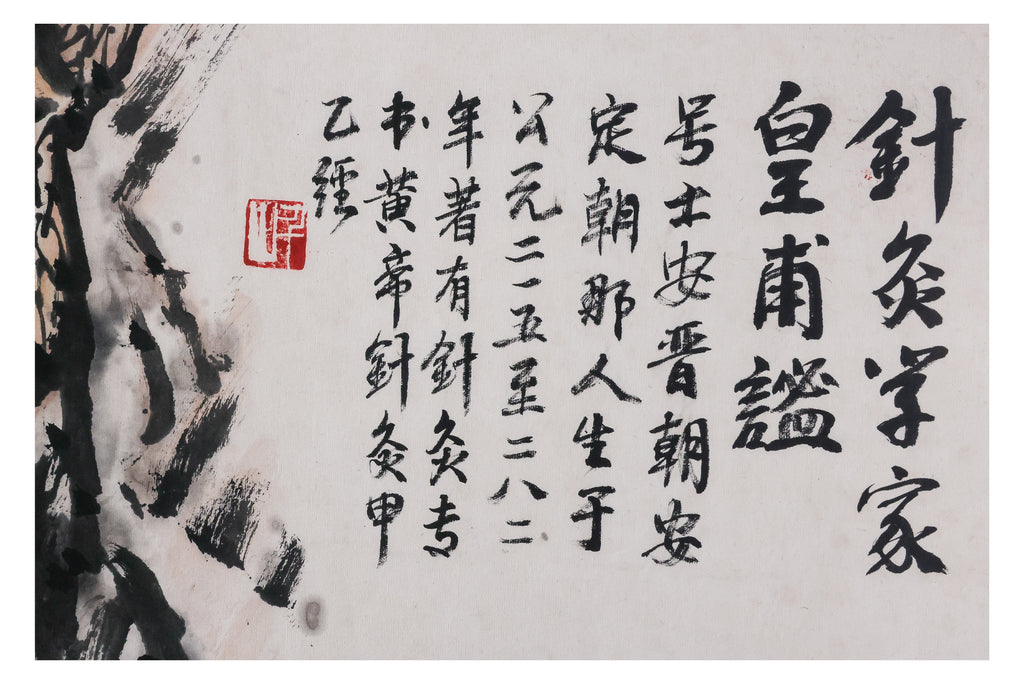 針灸学家
皇甫謐
号士安晋朝安
定朝那人生于
公元二一五至二八二
年著有針灸专
书黄帝針灸甲
乙經